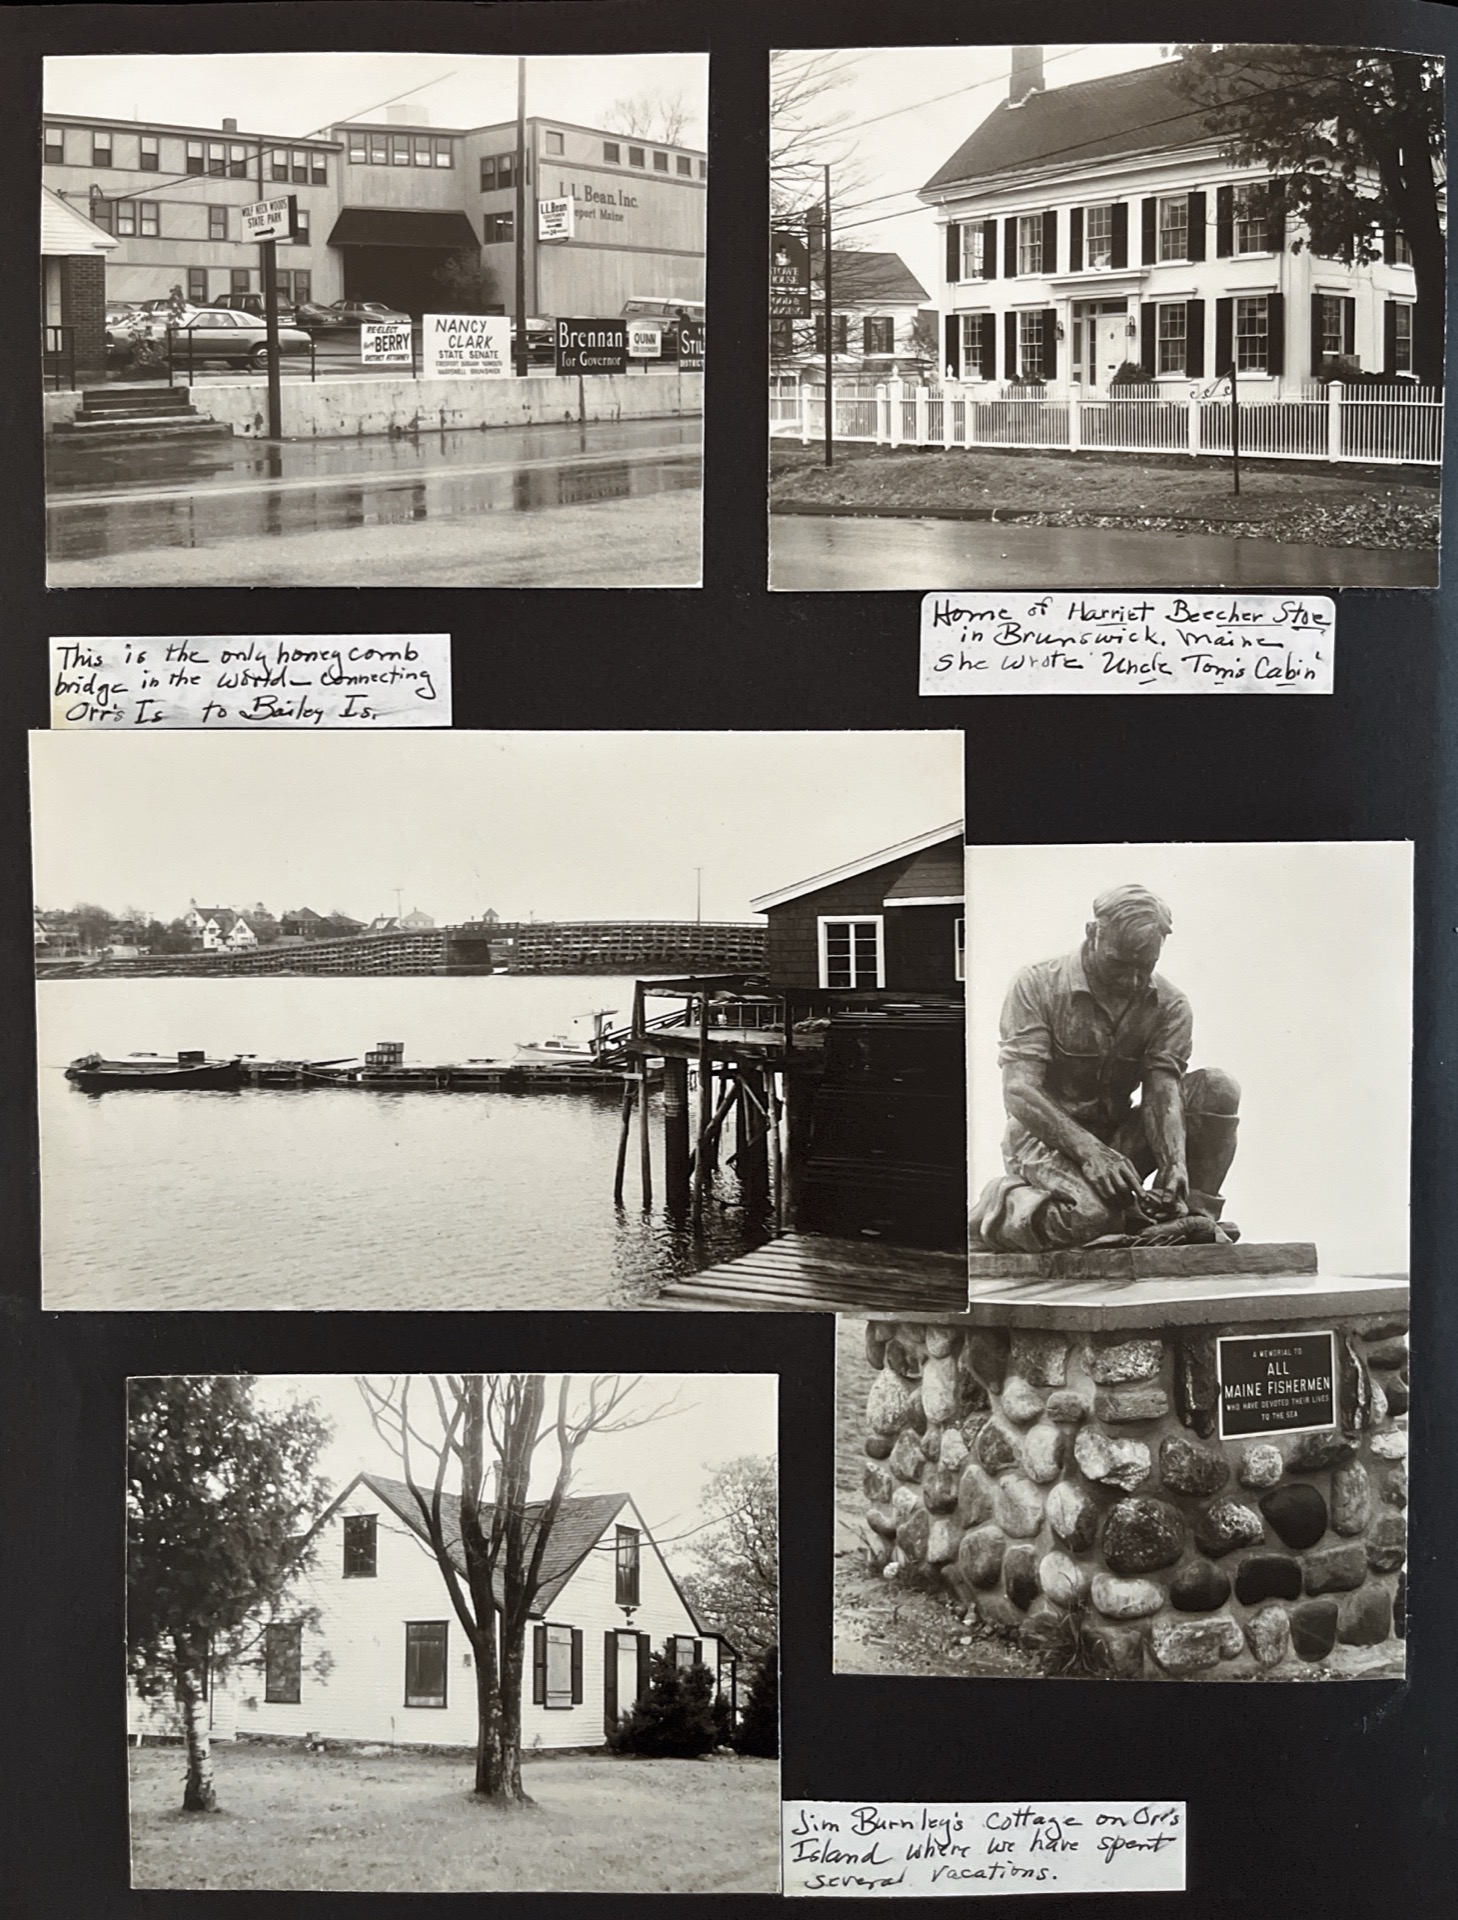 WOLF NECK WOODS
STATE PARK
L.L. Bean, Inc.
eeport Maine
L.L. Bean
RE-ELECT
BERRY
DISTRICT ATTORNEY
NANCY
CLARK
STATE SENATE
FREEPORT DURHAM YARMOUTH
HARPSWELL BRUNSWICK
Brennan
for Governor
QUINN
STIL
DISTRIC
STOWE
HOUSE
Home of Harriet Beecher Stoe
in Brunswick. Maine
She wrote 'Uncle Tom's Cabin'
This is the only honeycomb
bridge in the world - connecting
Orr's Is to Bailey Is.
A MEMORIAL TO
ALL
MAINE FISHERMEN
WHO HAVE DEVOTED THEIR LIVES
TO THE SEA
Jim Burnley's Cottage on Orr's
Island where we have spent
several vacations.